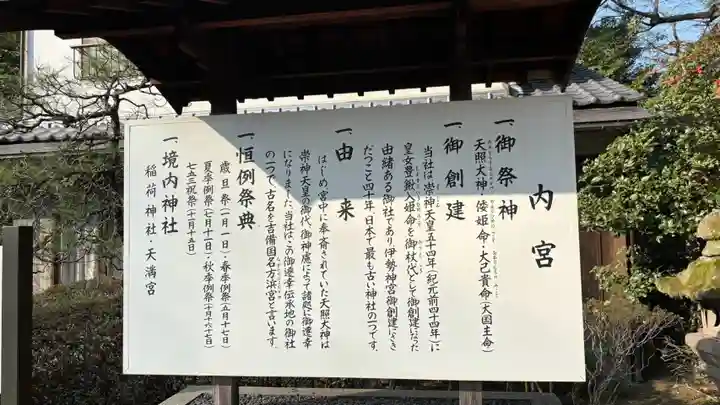 内宮
一、御祭神
天照大神・倭姫命・大己貴命(大国主命)
一、御創建
当社は崇神天皇五十四年(紀元前四十四年)に
皇女豊鍬入姫命を御杖代として御創建になった
由緒ある御社であり伊勢神宮御創建にさき
だつこと四十年、日本で最も古い神社の一つです。
一、由来
はじめ宮中に奉斎されていた天照大神は
崇神天皇の御代、御神慮によって諸処に御遷幸
になりました。当社はこの御遷幸伝承地の御社
の一つで、古名を吉備国名方浜宮と言います。
一、恒例祭典
歳旦祭(一月一日)・春季例祭(五月十七日)
夏季例祭(七月十一日)・秋季例祭(十月十六・七日)
七五三祝祭(十一月十五日)
一、境内神社
稲荷神社・天満宮